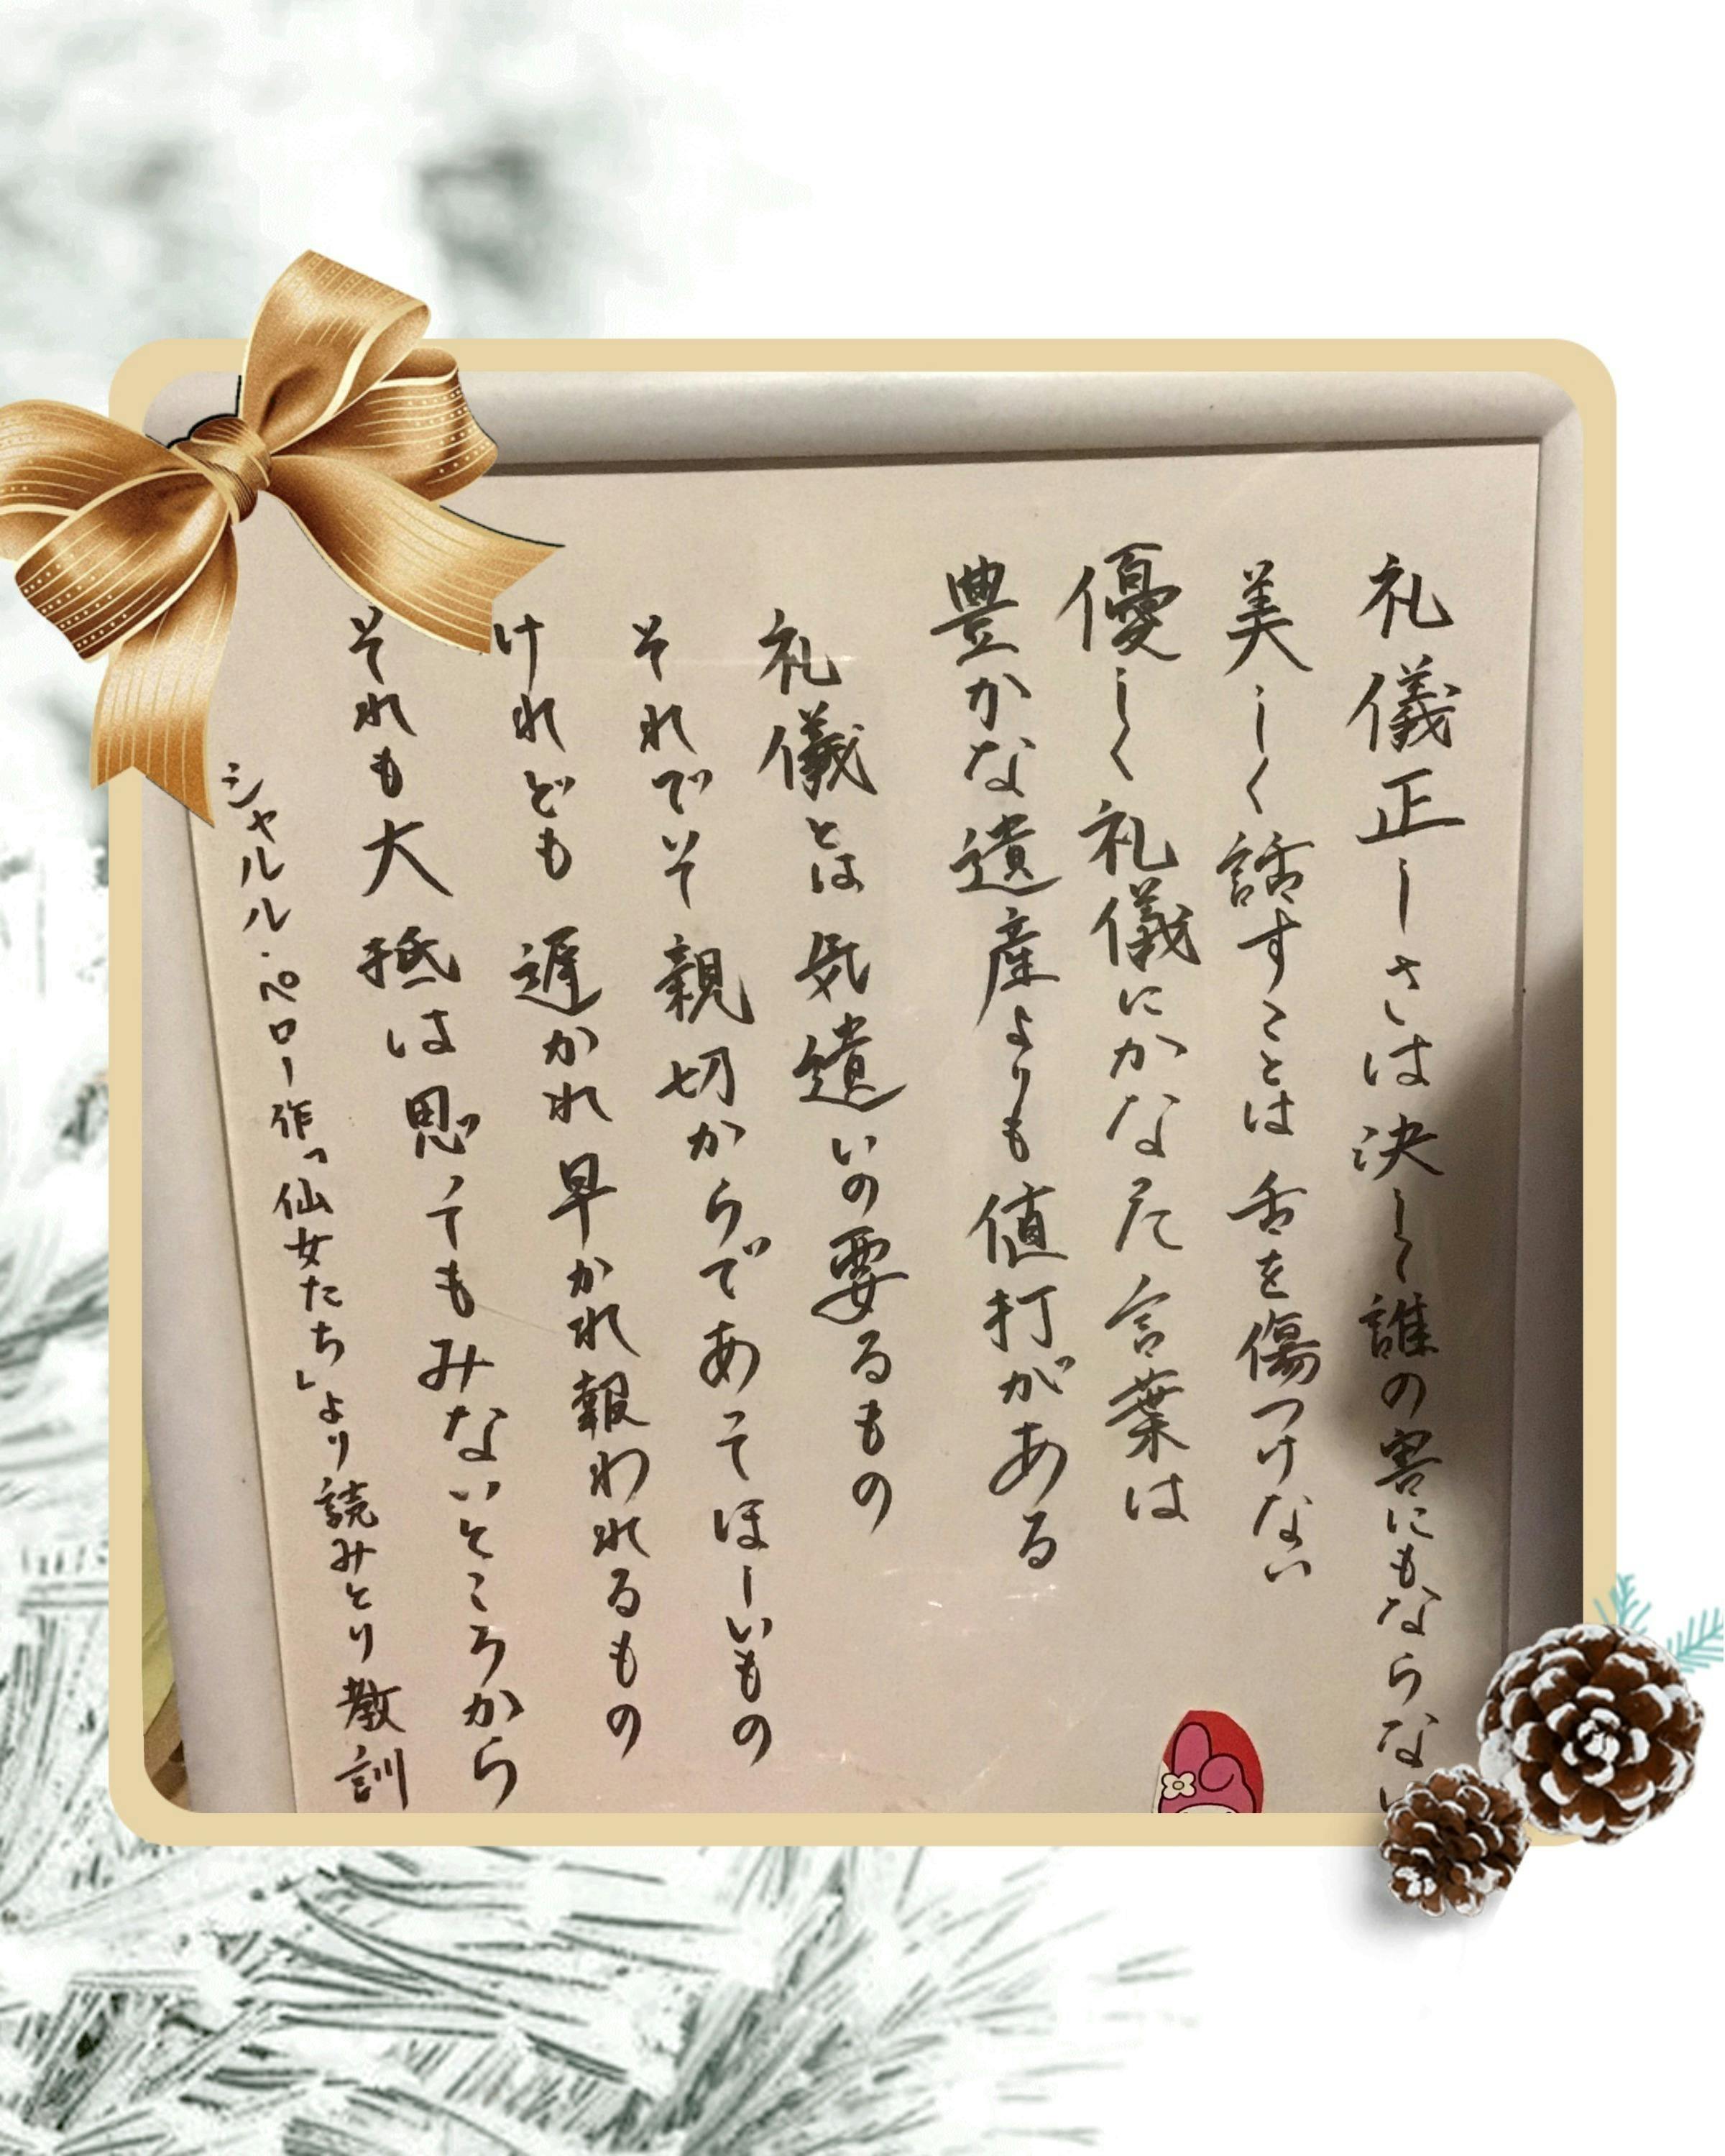 礼儀正しさは決して誰の害にもならない
美しく話すことは舌を傷つけない
優しく礼儀にかなった言葉は
豊かな遺産よりも値打がある
礼儀とは気遣いの要るもの
それでいて親切からであってほしいもの
けれども遅かれ早かれ報われるもの
それも大抵は思ってもみないところから
シャルル・ペロー作「仙女たち」より読みとり教訓